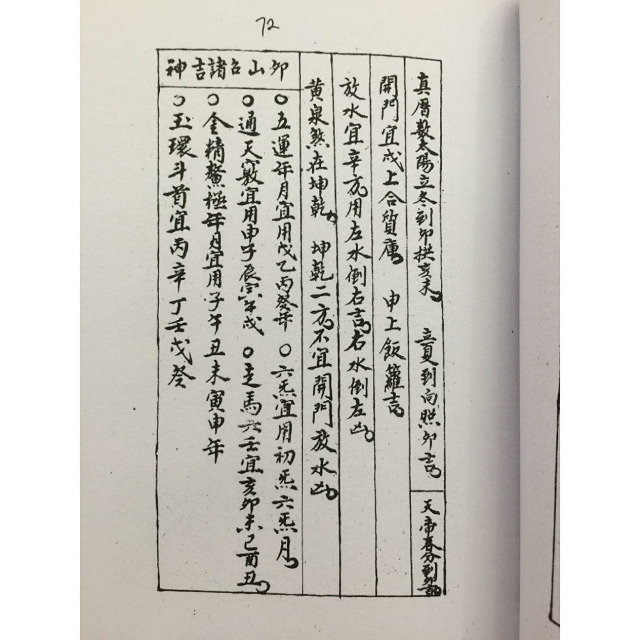 72
真曆數太陽立冬到卯拱亥未 立夏到向照卯吉
天帝春分到卯
開門宜戌上合貨庫 申上飯籮吉
放水宜辛方用左水倒右吉右水倒左凶
黄泉煞在坤乾 坤乾二方不宜開門放水凶
卯山召諸吉神
○五運年月宜用戊乙丙癸年 ○六炁宜用初炁六炁月
○通天竅宜用申子辰寅午戌 ○走馬六壬宜亥卯未己酉丑
○金精鰲極年月宜用子午丑未寅申年
○玉環斗首宜丙辛丁壬戊癸